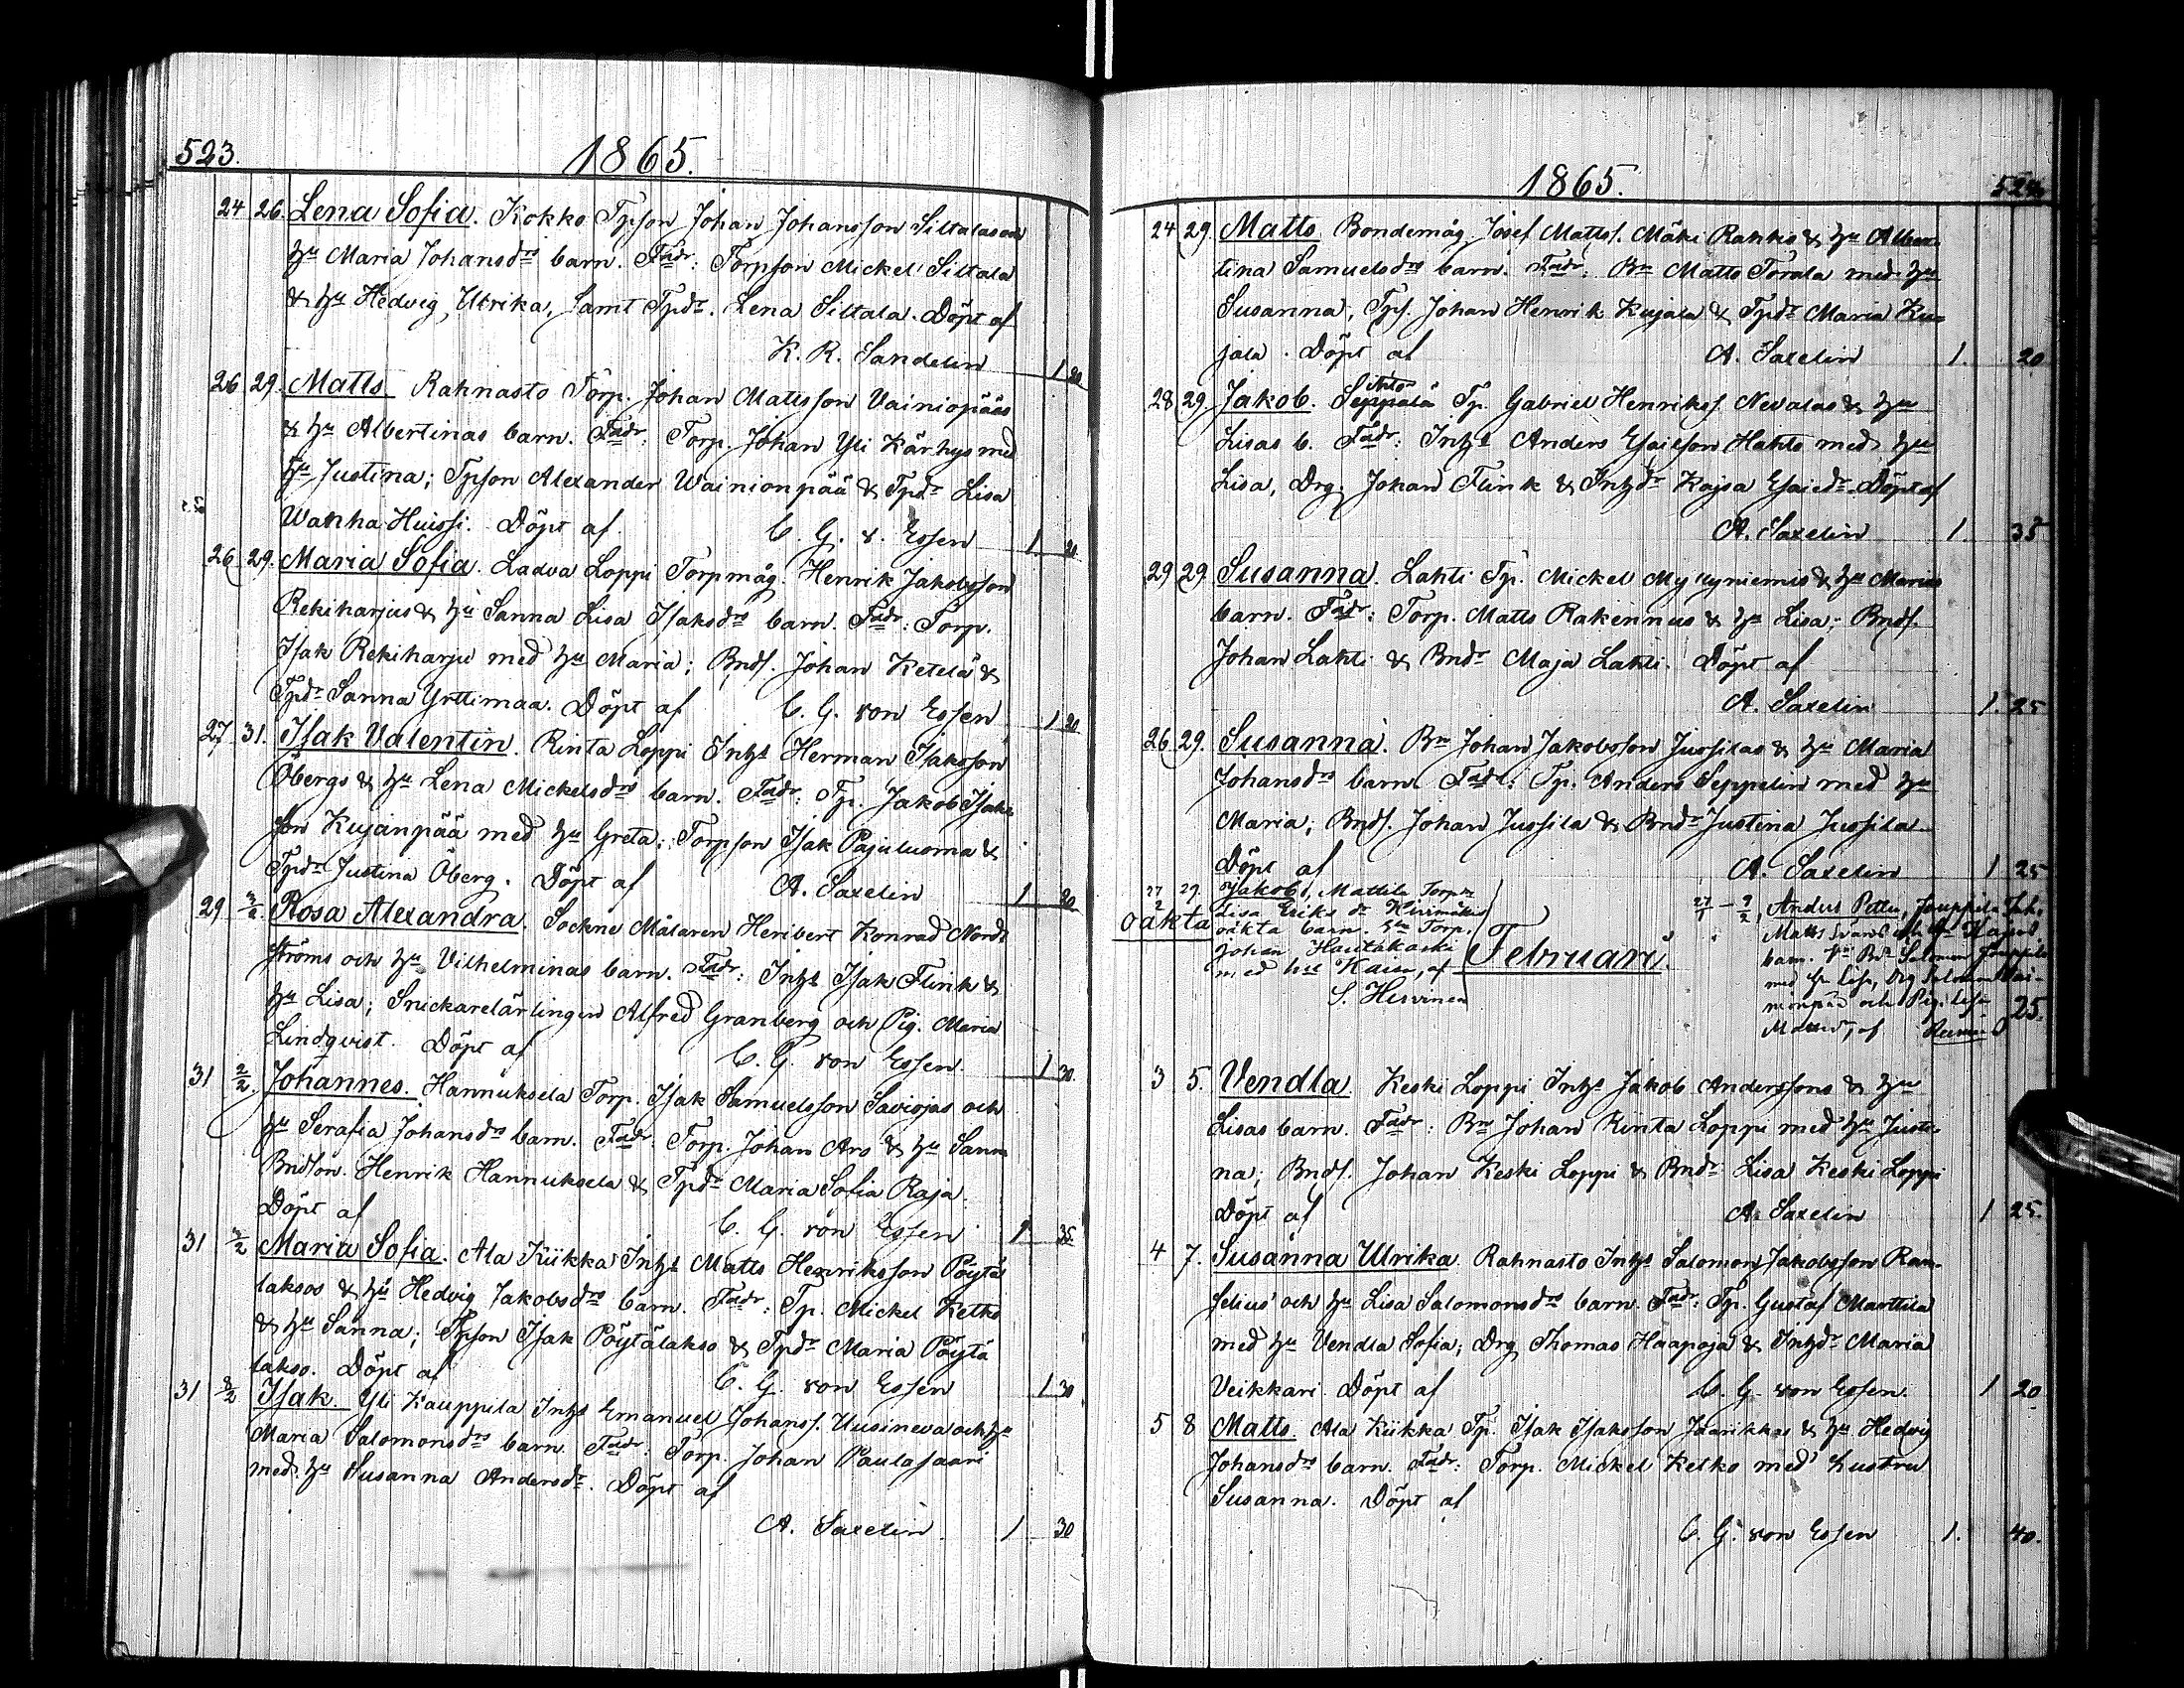 523.
1865.
24 26. Lena Sofia. Kokko Tpson Johan Johansson Siltalas och
hu Maria Johansdrs barn. Fadr: Torpson Mickel Siltala
& hu Hedvig Ulrika, samt Tpdr. Lena Siltala. Döpt af
K. R. Sandelin 1 20
26 29. Matts. Rahnasto Torp. Johan Mattsson Vainiopääs
& hu Albertinas barn. Fadr: Torp. Johan Yli Kärhys med
hu Justina; Tpson Alexander Wainionpää & Tpdr Lisa
Wanha Huissi. Döpt af C. G. v. Essen 1. 20
26 29. Maria Sofia. Ladva Loppi Torpmåg. Henrik Jakobsson
Rekiharjus & hu Sanna Lisa Isaksdrs barn. Fadr: Torp.
Isak Rekiharju med hu Maria; Bnds. Johan Ketelä &
Tpdr Sanna Yrttimaa. Döpt af C. G. von Essen 1 20
27 31. Isak Valentin. Rinta Loppi Inhs Herman Isaksson
Öbergs & hu Lena Mickelsdrs barn. Fadr: Tp. Jakob Isaks
son Kujanpää med hu Greta; Torpson Isak Pajuluoma &
Tpdr Justina Öberg. Döpt af A. Saxelin 1 20
29 3/2. Rosa Alexandra. Sockne Målaren Heribert Konrad Nord
ströms och hu Vilhelminas barn. Fadr: Inhs Isak Flink &
hu Lisa; Snickarelärlingen Alfred Granberg och Pig. Maria
Lindqvist. Döpt af C. G. von Essen. 1 30.
31 2/2. Johannes. Hannuksela Torp. Isak Samuelsson Saviojas och
hu Serafia Johansdrs barn. Fadr: Torp. Johan Aro & hu Sanna
Bndson. Henrik Hannuksela & Tpdr Maria Sofia Raja.
Döpt af C. G. von Essen 1 35
31 3/2 Maria Sofia. Ala Kiikka Inhs Matts Henriksson Pöytä
laksos & hu Hedvig Jakobsdrs barn. Fadr: Tp. Mickel Ketko
& hu Sanna; Tpson Isak Pöytälakso & Tpdr Maria Pöytä
lakso. Döpt af C. G. von Essen 1 30
31 8/2 Isak. Yli Kauppila Inhs Emanuel Johanss. Uusineva och hu
Maria Salomonsdrs barn. Fadr: Torp. Johan Paulasaari
med hu Susanna Andersdr. Döpt af
A. Saxelin. 1 30
1865.
524.
24 29. Matts. Bondemåg Josef Matts. Mäki Rahko & hu Alber
tina Samuelsdrs barn. Fadr: Bn Matts Torala med hu
Susanna, Tps. Johan Henrik Kujala & Tpdr Maria Ku=
jala. Döpt af A. Saxelin 1. 20
28 29. Jakob. Seppälä Tp. Gabriel Henrikss. Nevalas & hu
Lisas b. Fadr: Inhs Anders Esaisson Hahto med hu
Lisa, Drg. Johan Flink & Inhdr Kajsa Esaiedr. Döpt af
A. Saxelin 1. 35
29 29. Susanna. Lahti Tp. Mickel Myllyniemis & hu Marias
barn. Fadr: Torp. Matts Rakennus & hu Lisa; Bnds.
Johan Lahti & Bndr Maja Lahti. Döpt af
A. Saxelin 1. 25
26. 29. Susanna. Bn Johan Jakobsson Jussilas & hu Maria
Johansdrs barn. Fadr: Tp. Anders Seppelin med hu
Maria; Bnds. Johan Jussila & Bndr Justina Jussila.
Döpt af A. Saxelin 1 25
27 29. Jakob, Mattila Torp
Lisa Eriks dr Hirvimäkis
oäkta oäkta barn. Torp.
Johan Hautakoski
med hu Kaisa, af
S. Hirvinen
27/1 – 9/2, Anders Petter, Jouppila
Matts
barn. Bn Salomon Jouppila
med hu Lisa, Drg Salomon
och Pig. Lisa
25.
af
Februari.
3 5. Vendla. Keski Loppi Inhs Jakob Anderssons & hu
Lisas barn. Fadr: Bn Johan Rinta Loppi med hu Justi-
na; Bnds. Johan Keski Loppi & Bndr Lisa Keski Loppi
Döpt af A. Saxelin 1 25.
4 7. Susanna Ulrika. Rahnasto Inhs Salomon Jakobsson Ram-
selius och hu Lisa Salomonsdrs barn. Fadr: Tp. Gustaf Marttila
med hu Vendla Sofia; Drg Thomas Haapoja & Inhdr Maria
Veikkari. Döpt af C. G. von Essen. 1 20
5 8 Matts. Ala Kiikka Tp. Isak Isaksson Jaarikkas & hu Hedvig
Johansdrs barn. Fadr: Torp. Mickel Ketko med hustru
Susanna. Döpt af
C. G. von Essen 1. 40.